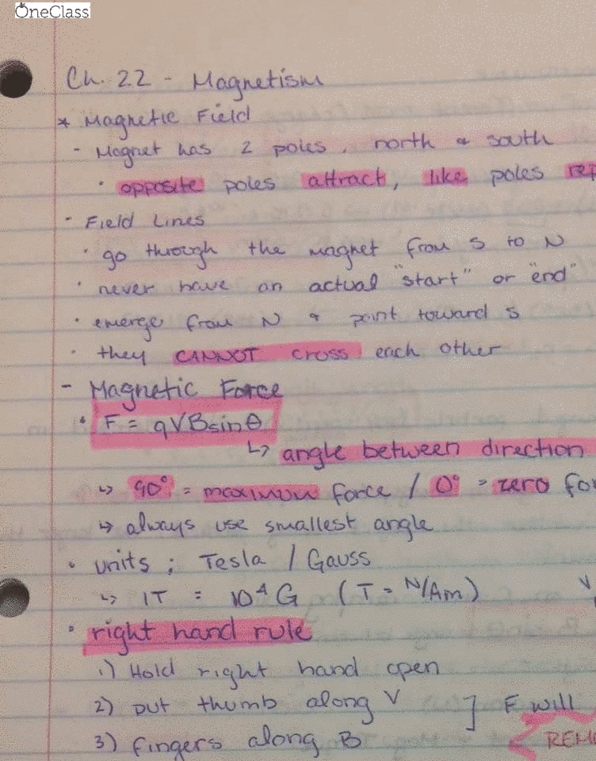 OneClass
Ch. 22 - Magnetism
* Magnetic Field
- Magnet has 2 poles, north & south
· opposite poles attract, like poles rep
- Field Lines
· go through the magnet from S to N
· never have an actual "start" or "end"
· emerge from N & point toward S
· they CANNOT cross each other
- Magnetic Force
· F = qVBsinθ
↳ angle between direction
↳ 90° = maximum force / 0° = zero fo
↳ always use smallest angle
· units; Tesla / Gauss
↳ 1T = 10⁴G (T = N/Am)
V
· right hand rule
1) Hold right hand open
2) put thumb along V ] F will
3) fingers along B REM